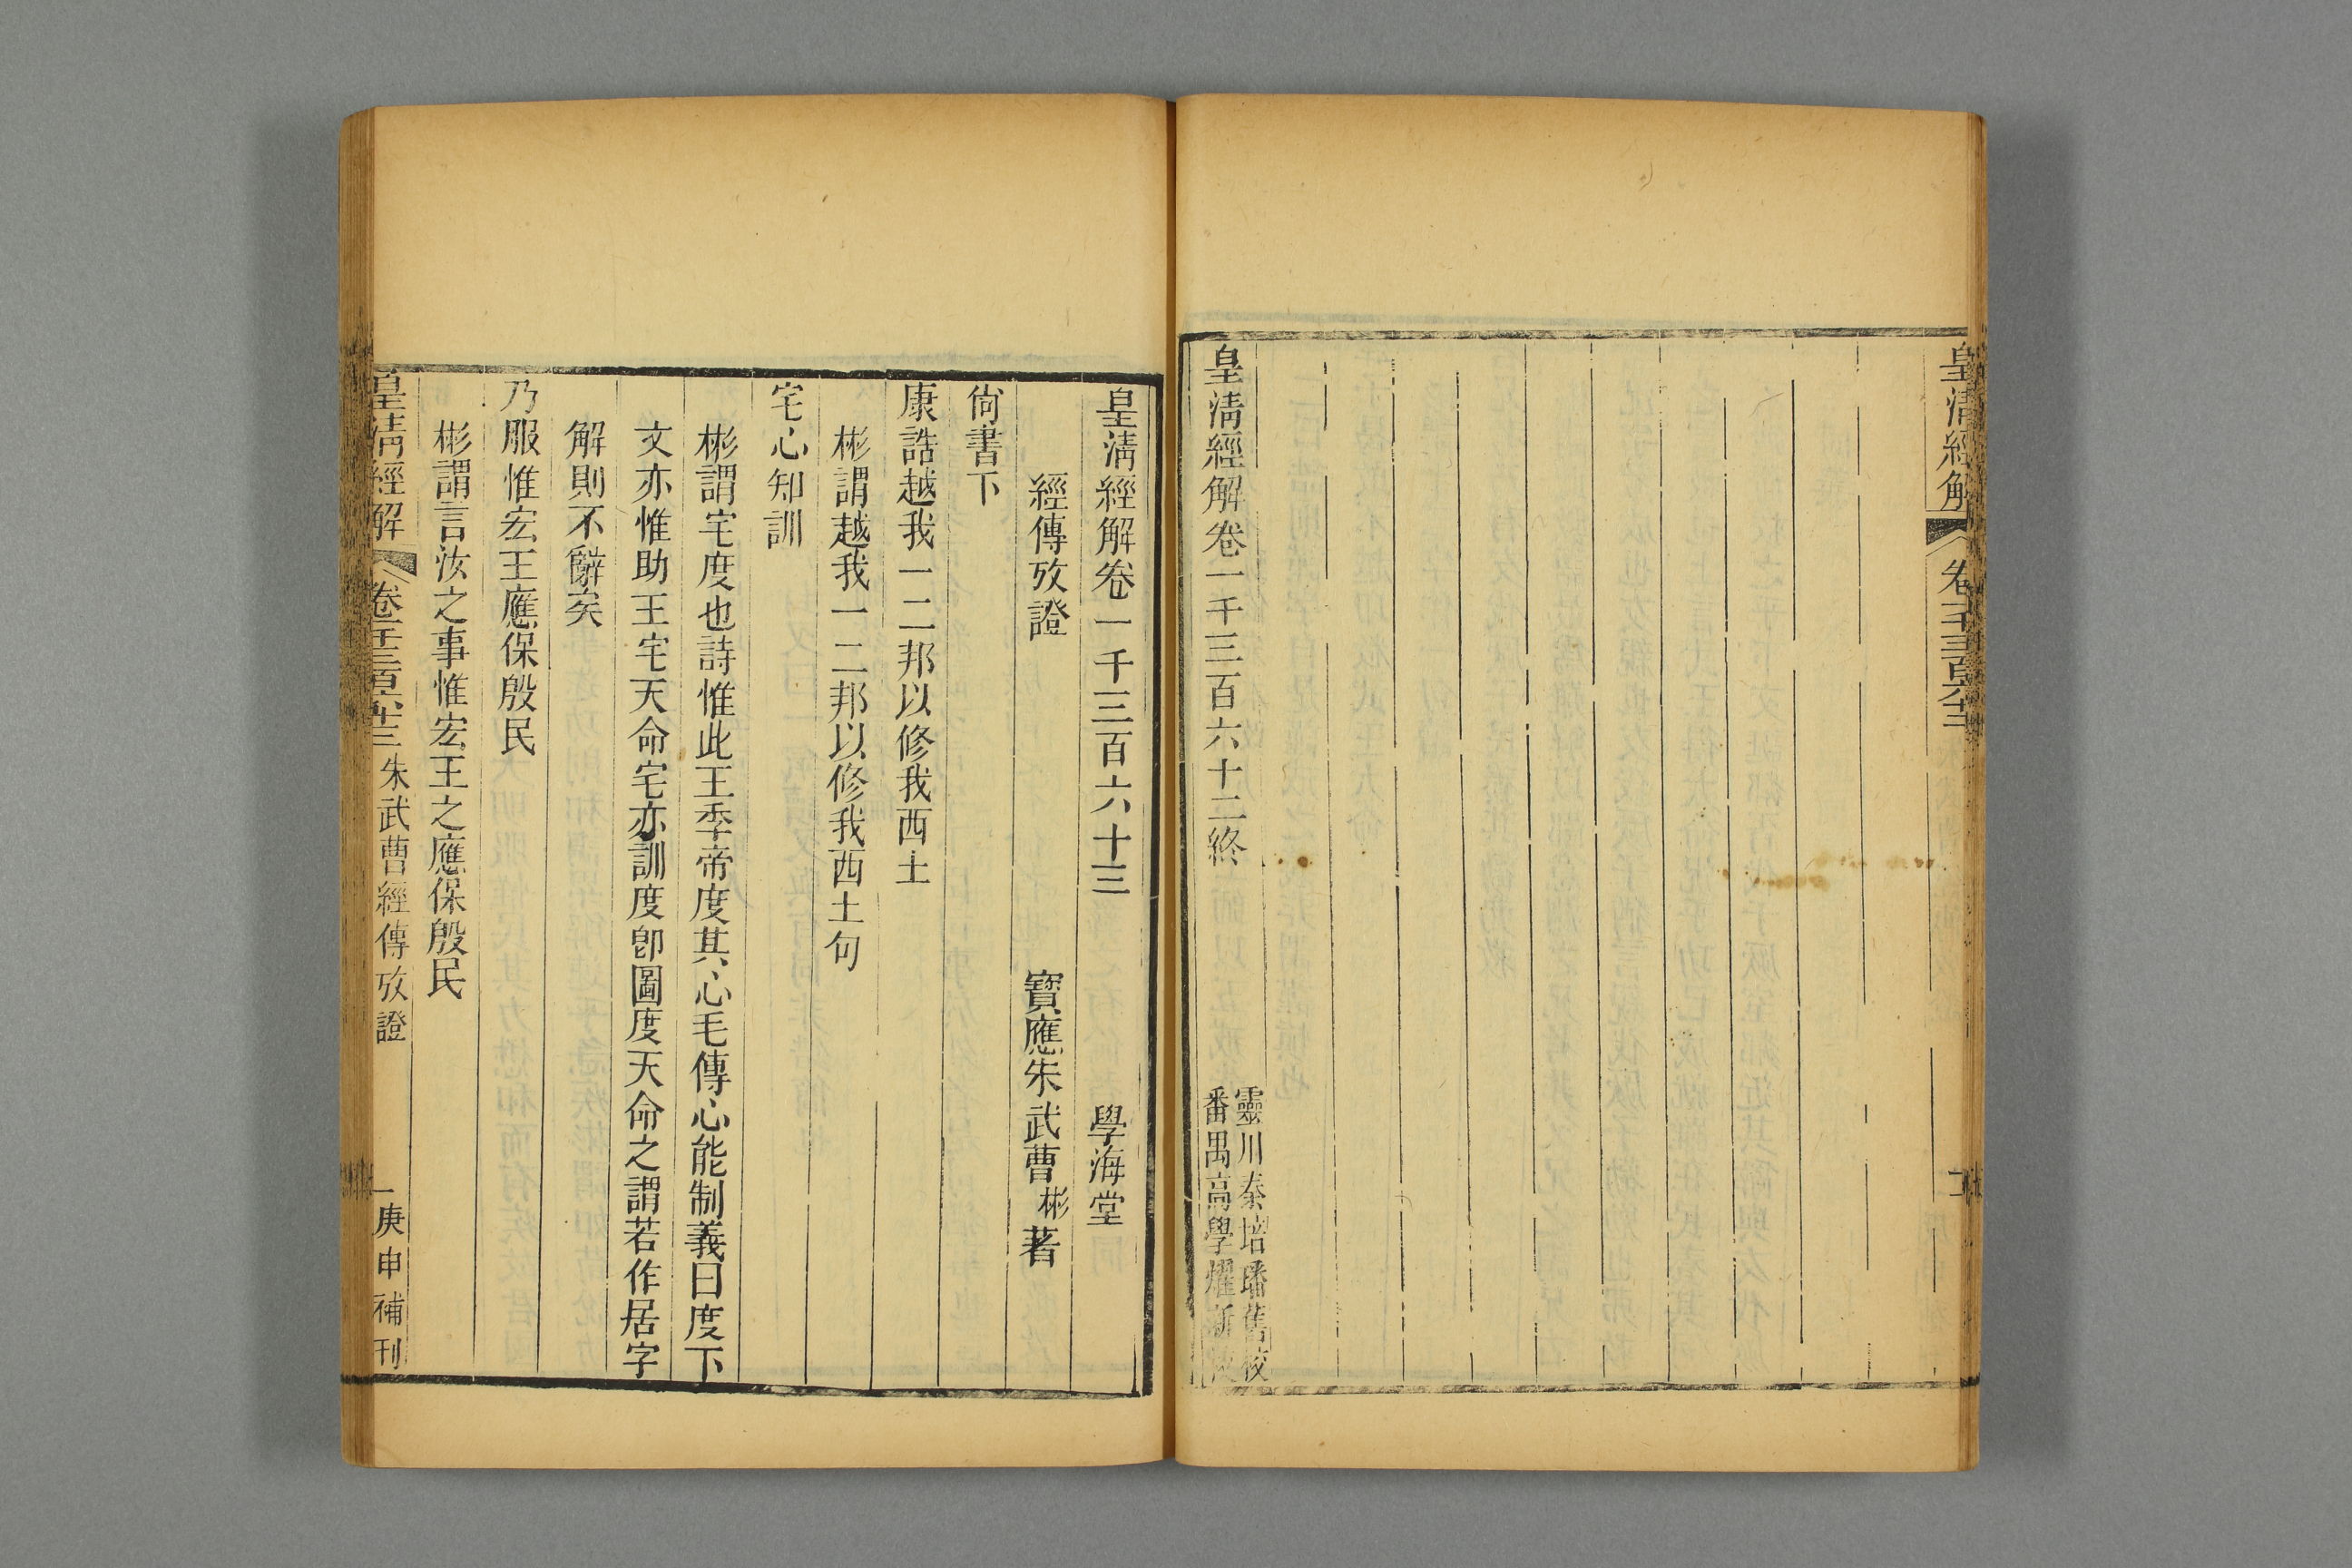 皇淸經解
皇淸經解卷一千三百六十二終
靈川秦培璠舊校
番禺高學燿新
皇淸經解卷一千三百六十三
學海堂
經傳攷證
寶應朱武曹彬著
尙書下
康誥越我一二邦以修我西土
彬謂越我一二邦以修我西土句
宅心知訓
彬謂宅度也詩惟此王季帝度其心毛傳心能制義曰度下
文亦惟助王宅天命宅亦訓度卽圖度天命之謂若作居字
解則不辭矣
乃服惟宏王應保殷民
彬謂言汝之事惟宏王之應保殷民
皇淸經解
卷一千三百六十三
朱武曹經傳攷證
一
庚申補刊